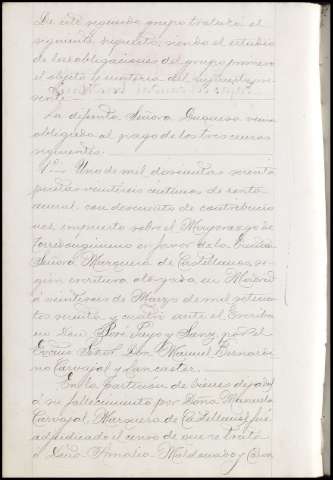 De este segundo grupo tratará el
siguiente supuesto, siendo el estudio
de las obligaciones del grupo primero
el objeto y materia del supuesto pre-
sente.
La difunta Señora Duquesa venía
obligada al pago de los tres censos
siguientes.
1º Uno de mil doscientas sesenta
pesetas veintiseis centimos de renta
anual, con descuento de contribucio-
nes, impuesto sobre el Mayorazgo de
en favor de la Exma.
Señora Marquesa de Castellanos, se-
gún escritura otorgada en Madrid
a veintiseis de Marzo de mil setecien-
tos noventa y cuatro ante el Escriba-
no Don José Payo y Sanz, por el
Excmo. Señor Don Manuel Bernardi-
no Carvajal y Lancaster.
En la partición de bienes dejados
a su fallecimiento por Doña Manuela
Carvajal, Marquesa de Castellanos, fué
adjudicado el censo de que se trata
a Doña Amalia Maldonado y Car-